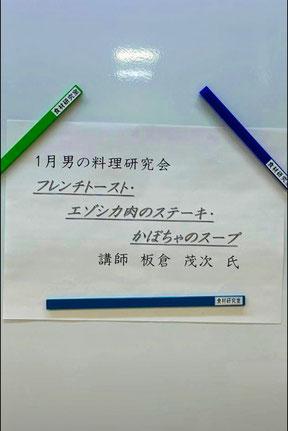 食材研究室
食材研究室
1月男の料理研究会
フレンチトースト・
エゾシカ肉のステーキ・
かぼちゃのスープ
講師 板倉 茂次 氏
食材研究室